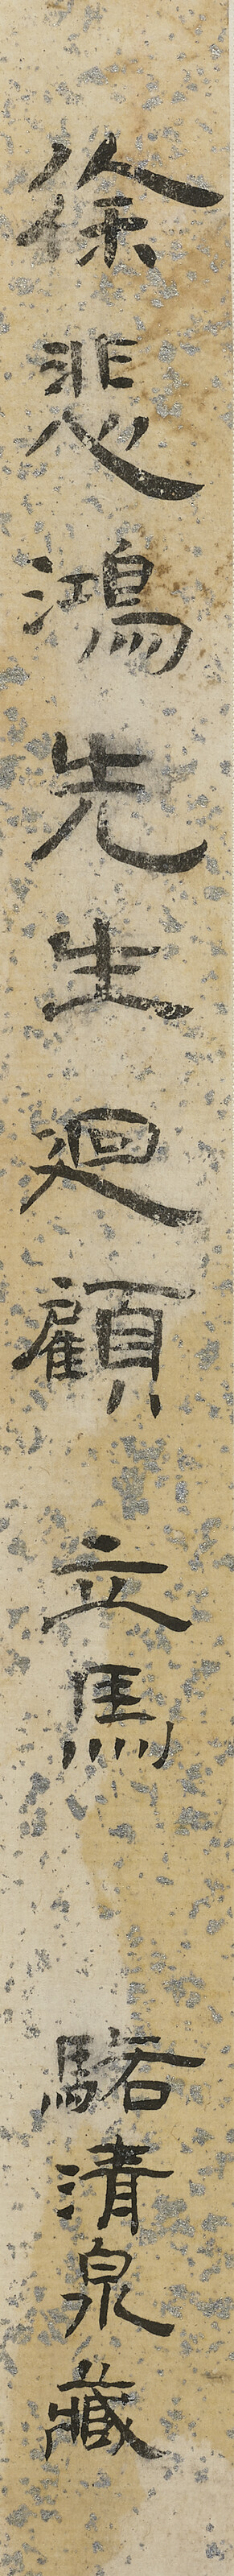 徐悲鴻先生迴顧立馬 駱清泉藏